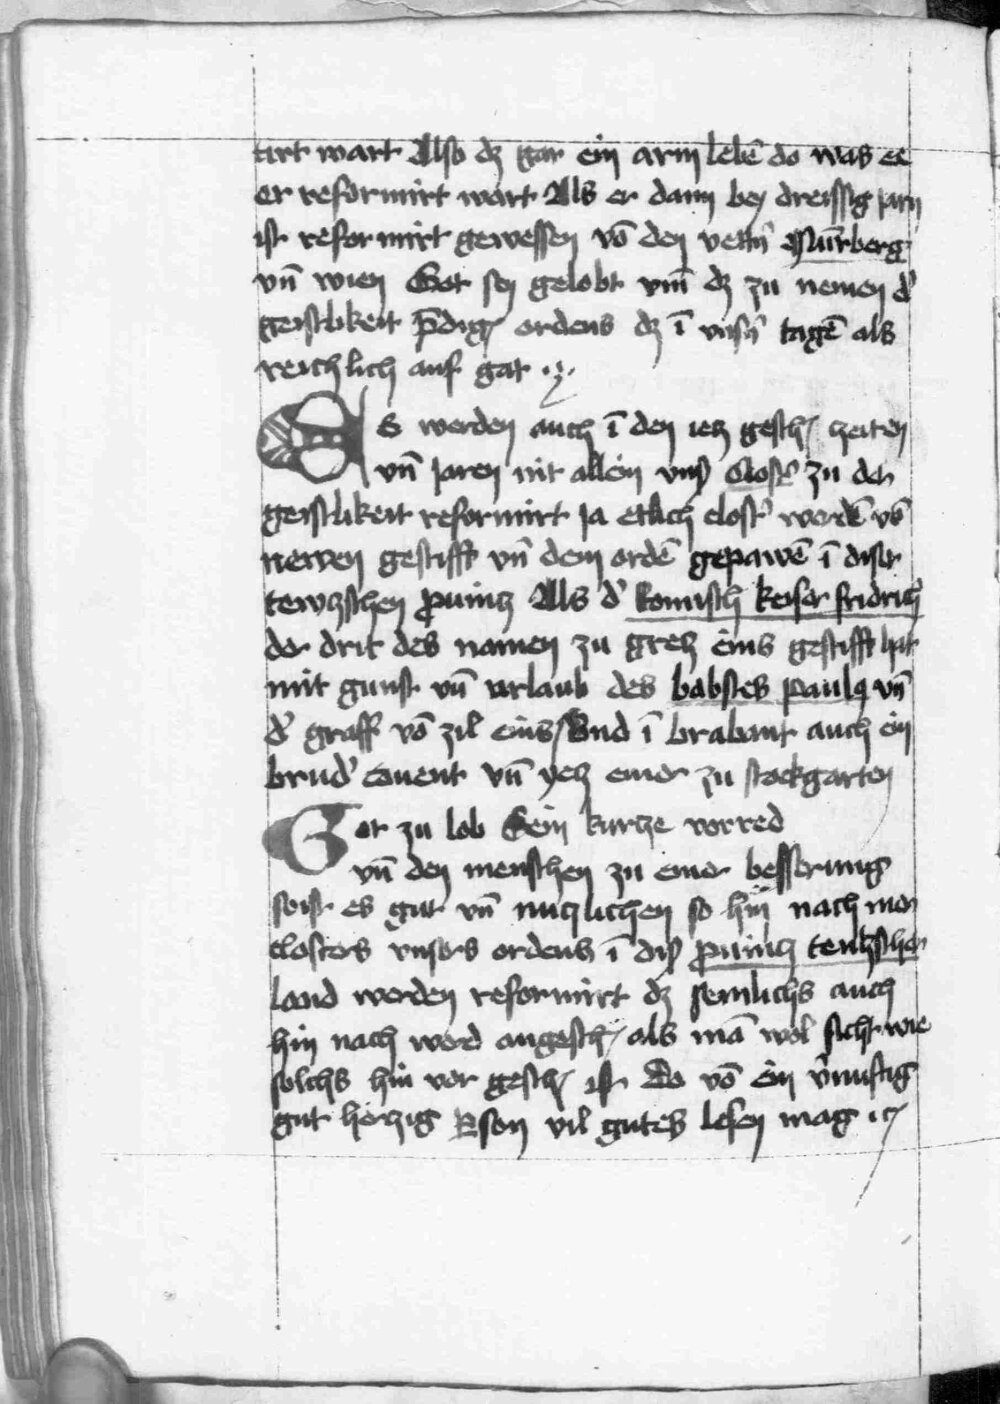 tirt wart Also dz gar ein arm lebē do was ee
er reformirt wart Als er dann bey dreissig jarn
ist reformirt gewessen vō den vettn̄ Nur̄berg
vn̄ wien Got sey gelobt vm̄ dz zu nemen d'
geistlikeit p̄dig' ordens dz ī vnsn̄ tagē als
reichlich auf gat
Es werden auch ī den ietz gesch' zeiten
vn̄ jaren nit allein vns' Clost' zu der
geistlikeit reformirt ja etlich clost' werdē vō
newen gestifft vn̄ dem ordē gepawē ī diser
tewtzschen p̄uintz Als d' Romisch keiser fridrich
der drit des namen zu gretz eins gestifft hat
mit gunst vn̄ vrlaub des babstes paulꝯ vn̄
d' graff vō zil eins Vnd ī brabant auch ein
brud' conent vn̄ yetz einer zu stockgarten
Got zu lob Sein kurtze vorred
vn̄ den menschen zu einer besserung
so ist es gut vn̄ nuczlichen so hin nach mer
closters vnsers ordens ī dis' p̄uintz teutzscher
land werden reformirt dz semlichs auch
hin nach werd angesch' als mā wol sicht wie
solchs hin vor gesch' ist Do vō ein v'nuftig
gut hertzig ꝑson vil gutes lesen mag ⁊c